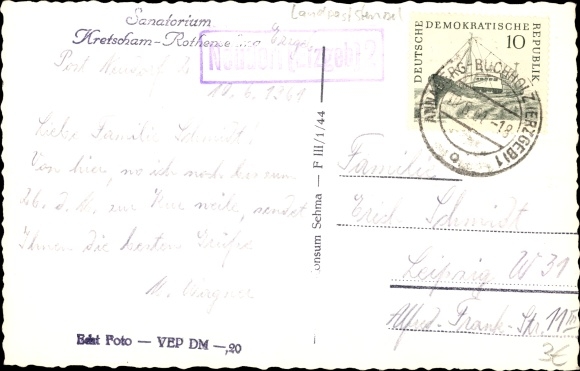 Landpoststempel
Sanatorium
Kretscham-Rothensehma Erzgeb.
Neudorf (Erzgeb) 2
Post Neudorf
10.6.1961
Liebe Familie Schmidt!
Von hier, wo ich noch bis zum
26. d. M. zur Kur weile, sendet
Ihnen die besten Grüße
M. Wagner
Echt Foto — VEP DM —,20
Konsum Sehma — F III/1/44 —
DEUTSCHE DEMOKRATISCHE REPUBLIK
10
ANNABERG-BUCHHOLZ (ERZGEB) 1
Familie
Erich Schmidt
Leipzig W 31
Alfred-Frank-Str. 11 III
3€